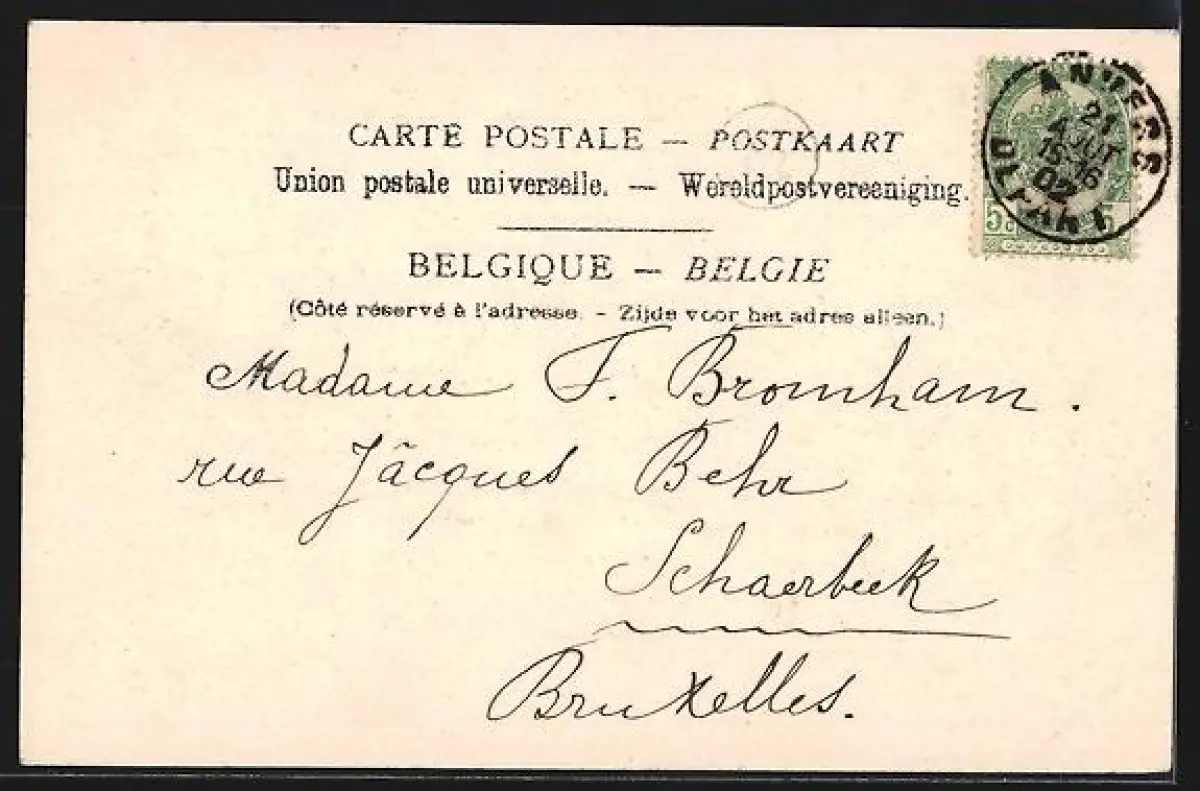 CARTE POSTALE — POSTKAART
Union postale universelle. — Wereldpostvereeniging.
BELGIQUE — BELGIE
(Côté réservé à l'adresse. - Zijde voor het adres alleen.)
ANVERS
21
AOUT
15-16
02
DEPART
5c 5
Madame F. Bromham.
rue Jãcques Behr
Schaerbeek
Bruxelles.